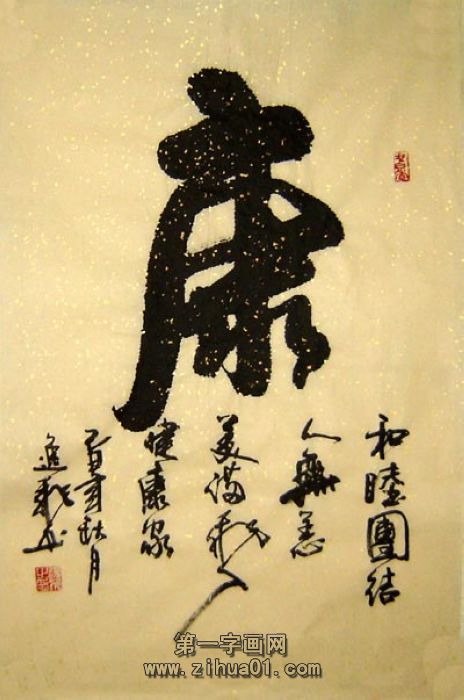 康
和睦團結
人無恙
美滿 人
健康家
亥秋月
書
第一字画网
www.zihua01.com